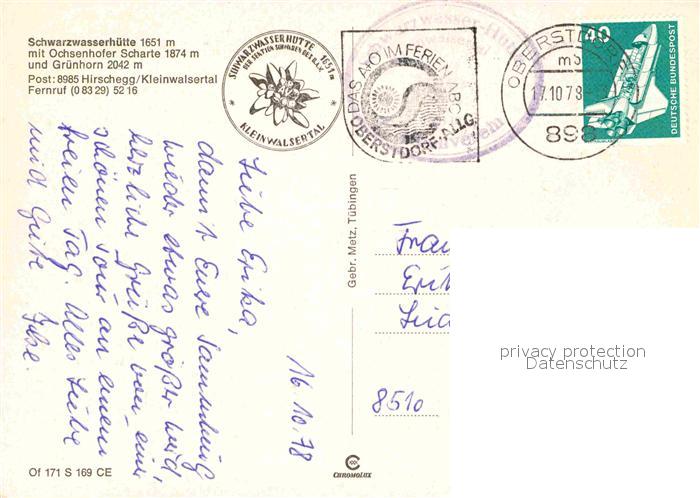 Schwarzwasserhütte 1651 m
mit Ochsenhofer Scharte 1874 m
und Grünhorn 2042 m
Post: 8985 Hirschegg/Kleinwalsertal
Fernruf (0 83 29) 52 16
SCHWARZWASSERHÜTTE 1651 m
DER SEKTION SCHWABEN DES D.A.V.
KLEINWALSERTAL
DAS A+O IM FERIEN-ABC
OBERSTDORF-ALLG.
Schwarzwasser-Hütte
OBERSTDORF
mb
17.10.78
898
40
DEUTSCHE BUNDESPOST
16.10.78
Liebe Erika,
damit Eure Sammlung
wieder etwas größer wird,
herzliche Grüße von einer
schönen Tour an einem
freien Tag. Alles Liebe
und Gute
Ilse.
Gebr. Metz, Tübingen
Frau
8510
CHROMOLUX
Of 171 S 169 CE
privacy protection
Datenschutz